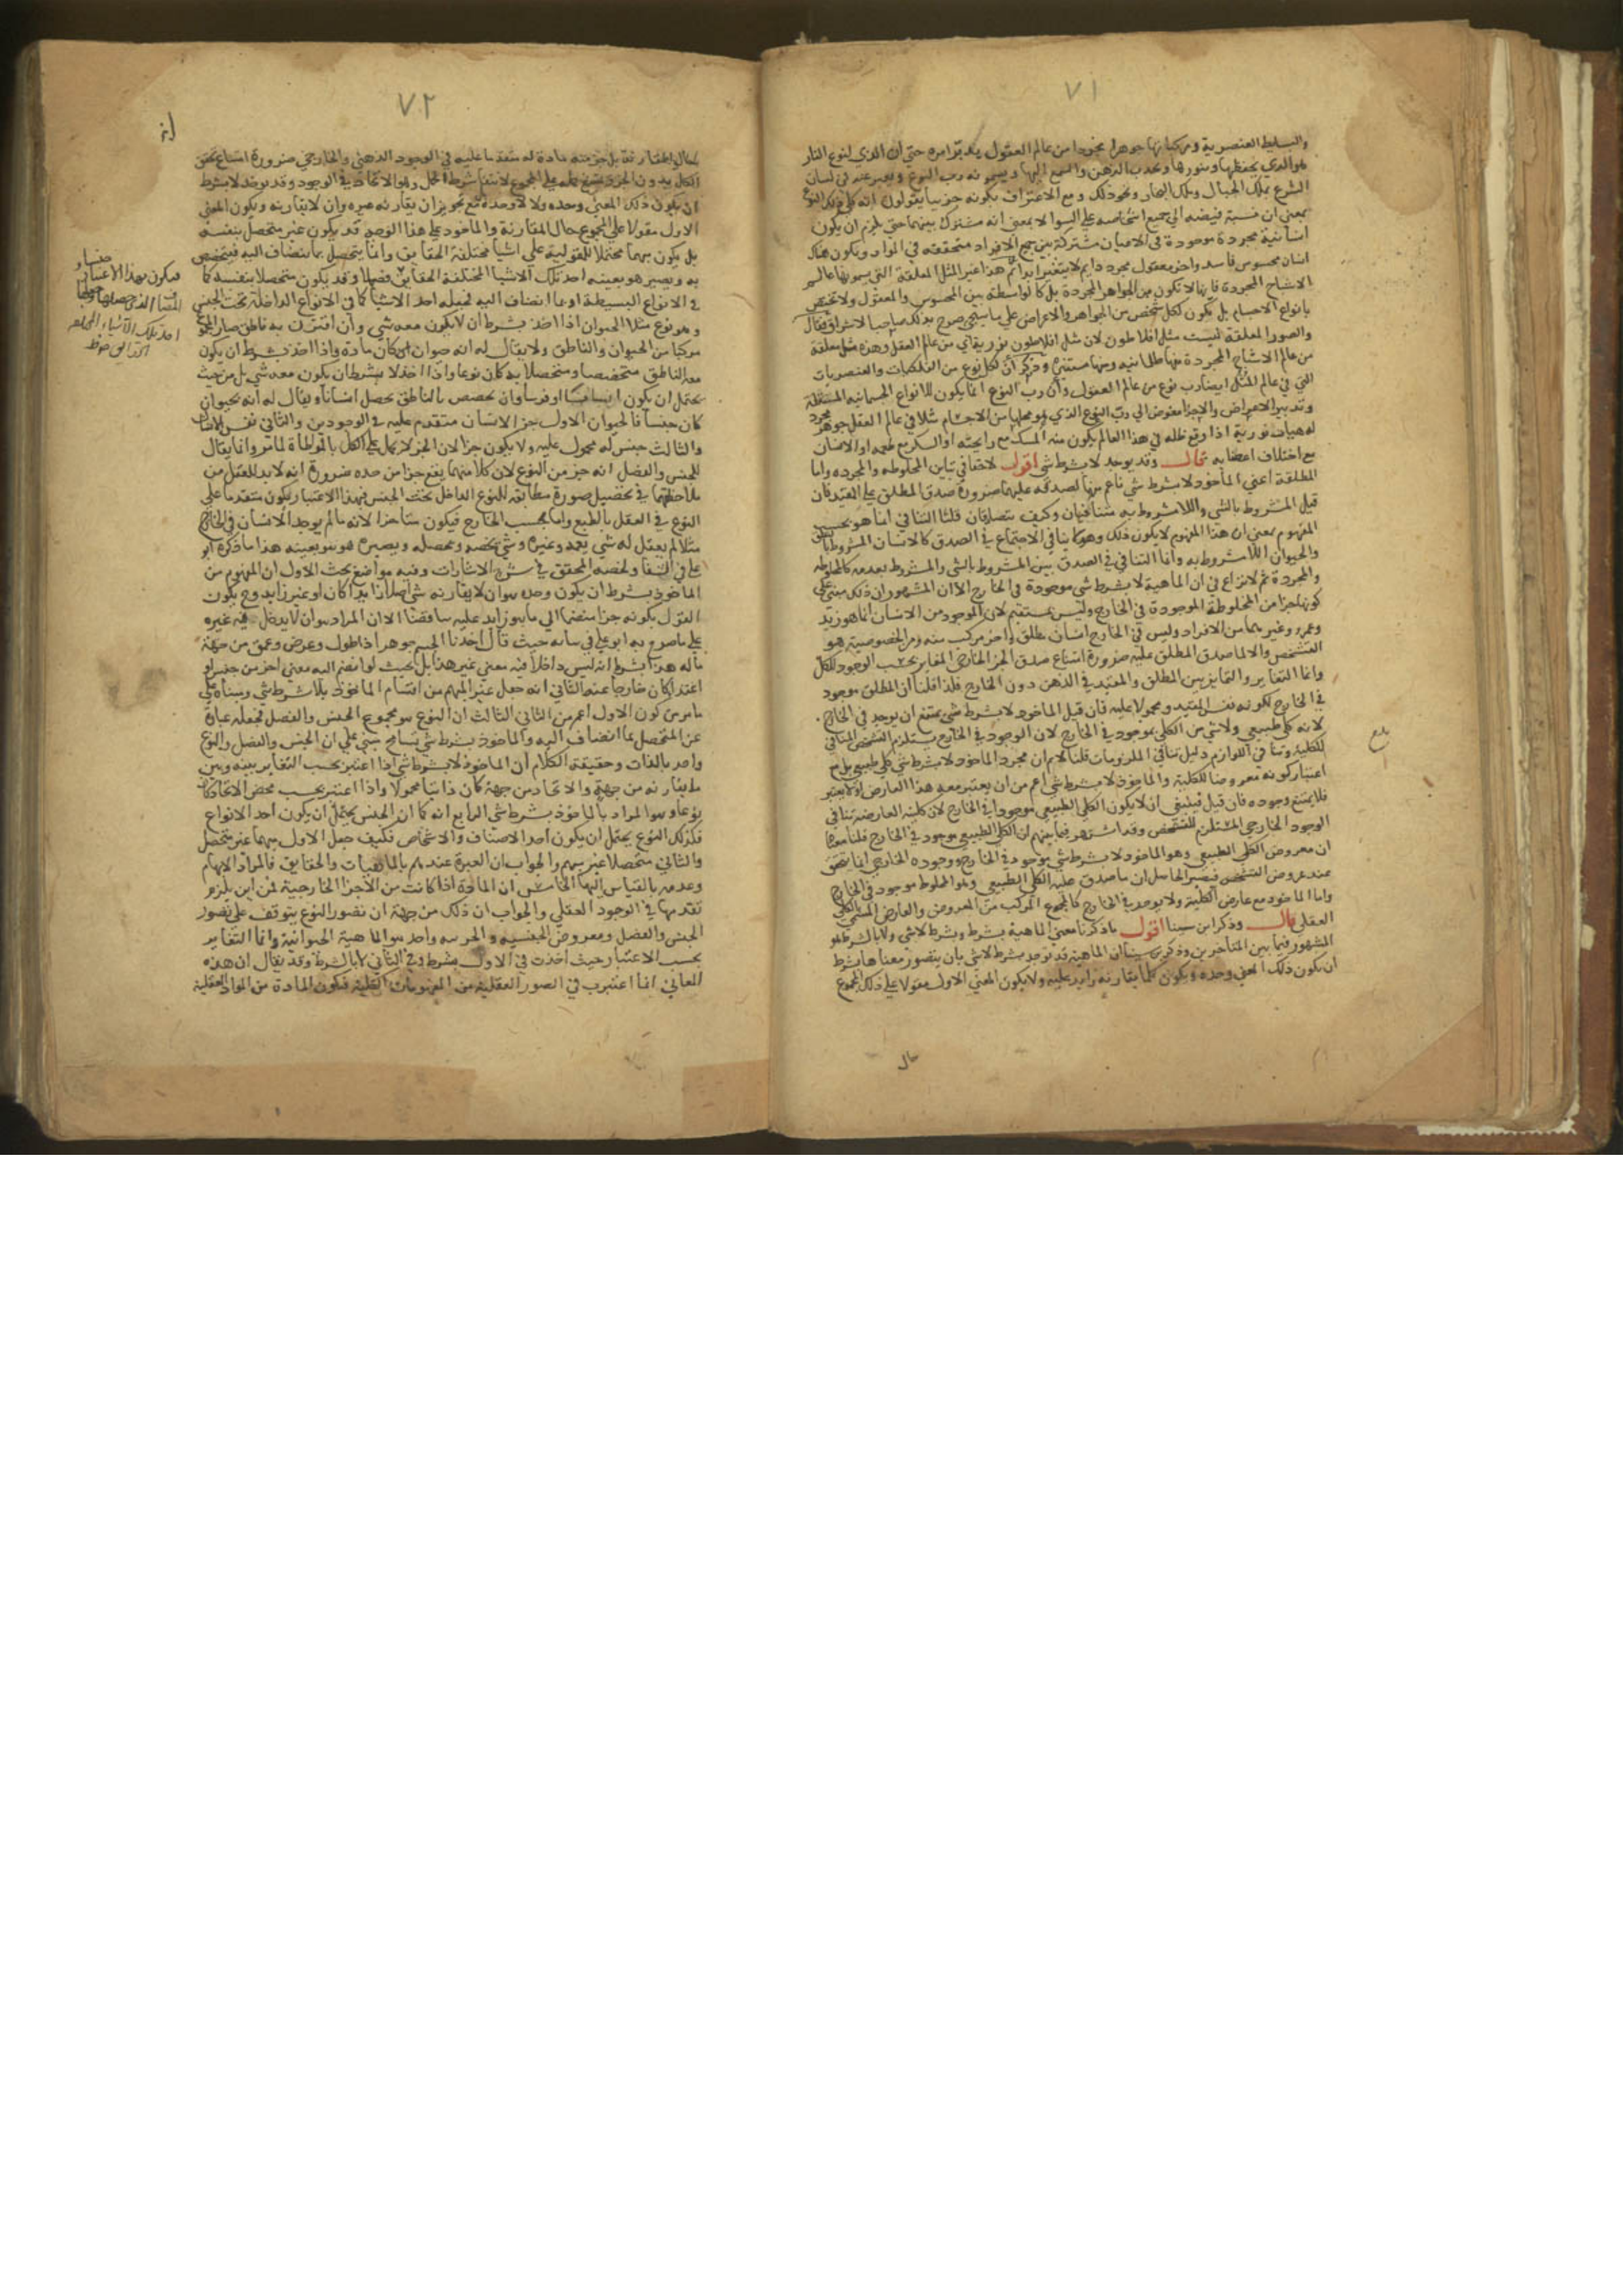 ٧١
والبسايط العنصرية ومركباتها جوهرا مجردا من عالم العقول يدبر امره حتى ان الذي لنوع النار
هو الذي يحفظها وينورها ويجذب الدهن والشمع اليها ويسمونه رب النوع ويعبر عنه في لسان
الشرع بملك الجبال وملك البحار ونحو ذلك ومع الاعتراف بكونه جزييا يقولون انه كلي ذلك النوع
بمعني ان نسبة فيضه الي جميع اشخاصه علي السوا لا بمعني انه مشترك بينها حتي يلزم ان يكون
انسانية مجردة موجودة في الاعيان مشتركة بين جميع الافراد متحققة في المواد ويكون هناك
انسان محسوس فاسد واخر معقول مجرد دايم لا يتغير ابدا ثم هذا غير المثل المعلقة التي يسمونها عالم
الاشباح المجردة فانها لا تكون من الجواهر المجردة بل كالواسطة بين المحسوس والمعقول ولا تختص
بانواع الاجسام بل يكون لكل شخص من الجواهر والاعراض علي ما سيجي صرح بذلك صاحب الاشراق فقال
والصور المعلقة ليست مثل افلاطون لان مثل افلاطون نورية اي من عالم العقل وهذه مثل معلقة
من عالم الاشباح المجردة منها ظلمانية ومنها مستنيرة وذكر ان لكل نوع من الفلكيات والعنصريات
التي في عالم المثل ايضا رب نوع من عالم العقول وان رب النوع انما يكون للانواع الجسمانية المستقلة
وتدبير الاعراض والاجزا مفوض الي رب النوع الذي هو محلها من الاجسام مثلا في عالم العقل جوهر مجرد
له هيات نورية اذا وقع ظله في هذا العالم يكون منه المسك مع رايحته او السكر مع طعمه او الانسان
مع اختلاف اعضايه قال وقد يوخذ لا بشرط شي اقول لا خفا في تباين المخلوطة والمجردة واما
المطلقة اعني الماخوذ لا بشرط شي فاعم منها لصدقه عليهما ضرورة صدق المطلق علي المقيد فان
قيل المشروط بالشي واللا مشروط به متنافيان وكيف يتصادقان قلنا التنافي انما هو بحسب
المفهوم بمعني ان هذا المفهوم لا يكون ذلك وهو لا ينافي الاجتماع في الصدق كالانسان المشروط بالنطق
والحيوان اللا مشروط به وانما التنافي في الصدق بين المشروط بالشي والمشروط بعدمه كالمخلوطة
والمجردة ثم لا نزاع في ان الماهية لا بشرط شي موجودة في الخارج الا ان المشهور ان ذلك مبني علي
كونها جزا من المخلوطة الموجودة في الخارج وليس بمستقيم لان الموجود من الانسان انما هو زيد
وعمرو وغيرهما من الافراد وليس في الخارج انسان مطلق واخر مركب منه ومن الخصوصية هو
الشخص والا لما صدق المطلق عليه ضرورة امتناع صدق الجز الخارجي المغاير بحسب الوجود للكل
وانما التغاير والتمايز بين المطلق والمقيد في الذهن دون الخارج فلذا قلنا ان المطلق موجود
في الخارج لكونه نفس المقيد ومحمولا عليه فان قيل الماخوذ لا بشرط شي يمتنع ان يوجد في الخارج
لانه كلي طبيعي ولا شي من الكلي بموجود في الخارج لان الوجود في الخارج يستلزم الشخص المنافي
للكلية وتنافي اللوازم دليل تنافي الملزومات قلنا لا نم ان مجرد الماخوذ لا بشرط شي كلي طبيعي بل مع
اعتبار كونه معروضا للكلية والماخوذ لا بشرط شي اعم من ان يعتبر معه هذا العارض او لا يعتبر
فلا يمتنع وجوده فان قيل فينبغي ان لا يكون الكلي الطبيعي موجودا في الخارج لان كلية العارضة تنافي
الوجود الخارجي المستلزم للتشخص وقد اشتهر فيما بينهم ان الكلي الطبيعي موجود في الخارج قلنا معناه
ان معروض الكلي الطبيعي وهو الماخوذ لا بشرط شي موجود في الخارج ووجوده الخارجي انما يتحقق
عند عروض التشخص فيصير الحاصل ان ما صدق عليه الكلي الطبيعي وهو المخلوط موجود في الخارج
واما الماخوذ مع عارض الكلية ولا يوجد في الخارج كالمجموع المركب من المعروض والعارض المسمي بالكلي
العقلي قال وذكر ابن سينا اقول ما ذكرنا معني الماهية بشرط وبشرط لا شي ولا بالشرط هو
المشهور فيما بين المتاخرين وذكر ابن سينا ان الماهية قد توخذ بشرط لا شي بان يتصور معناها بشرط
ان يكون ذلك المعني وحده ويكون كلما يقارنه زايد عليه ولا يكون المعني الاول مقولا علي ذلك المجموع
حال
٧٢
حال المقارنة بل جزيته مادة له متقدما عليه في الوجود الذهني والخارجي ضرورة امتناع تحقق
الكل بدون الجز ويمتنع حمله علي المجموع لانتفا شرط الحمل وهو الاتحاد في الوجود وقد يوخذ لا بشرط
ان يكون ذلك المعني وحده ولا لا وحده مع تجويز ان يقارنه غيره وان لا يقارنه ويكون المعني
الاول مقولا علي المجموع حال المقارنة والماخوذ علي هذا الوجه قد يكون غير متحصل بنفسه
بل يكون مبهما محتملا للمقولية علي اشيا مختلفة الحقايق وانما يتحصل بما ينضاف اليه فيتخصص
به ويصير هو بعينه احد تلك الاشيا المختلفة الحقايق فصلا وقد يكون متحصلا بنفسه كما
في الانواع البسيطة او بما انضاف اليه فجعله احد الاشيا كما في الانواع الداخلة تحت الجنس
وهو نوع مثلا الحيوان اذا اخذ بشرط ان لا يكون معه شي وان اقترن به ناطق صار المجموع
مركبا من الحيوان والناطق ولا يقال له انه حيوان كان مادة واذا اخذ بشرط ان يكون
معه الناطق متخصصا ومتحصلا به كان نوعا واذا اخذ لا بشرط ان يكون معه شي بل من حيث
يحتمل ان يكون انسانا او فرسا وان تخصص بالناطق يحصل انسانا ويقال له انه حيوان
كان جنسا فالحيوان الاول جز الانسان متقدم عليه في الوجودين والثاني نفس الانسان
والثالث جنس له محمول عليه ولا يكون جزا لان الجز لا يحمل علي الكل بالمواطاة لما مر وانما يقال
للجنس والفصل انه جز من النوع لان كلا منهما يقع جزا من حده ضرورة انه لا بد للعقل من
ملاحظتهما في تحصيل صورة مطابقة للنوع الداخل تحت الجنس فبهذا الاعتبار يكون متقدما علي
النوع في العقل بالطبع واما بحسب الخارج فيكون متاخرا لانه ما لم يوجد الانسان في الخارج
مثلا لم يعقل له شي يعمه وغيره وشي يخصه ويحصله ويصيره هو هو بعينه هذا ما ذكره ابو
علي في الشفا ولخصه المحقق في شرح الاشارات وفيه مواضع بحث الاول ان المفهوم من
الماخوذ بشرط ان يكون وحده هو ان لا يقارنه شي اصلا زايدا كان او غير زايد وح يكون
القول بكونه جزا منضما الي ما هو زايد عليه تناقضا الا ان المراد هو ان لا يدخل فيه غيره
علي ما صرح به ابو علي في بيانه حيث قال اخذنا الجسم جوهرا ذا طول وعرض وعمق من جهة
ما له هذا بشرط انه ليس داخلا فيه معني غير هذا بل بحيث لو انضم اليه معني اخر من حس او
اغتذا كان خارجا عنه الثاني انه جعل غير المبهم من اقسام الماخوذ بلا شرط شي وبناه علي
ما مر من كون الاول اعم من الثاني الثالث ان النوع هو مجموع الجنس والفصل فجعله عبارة
عن المتحصل بما انضاف اليه والماخوذ بشرط شي تسامح مبني علي ان الجنس والفصل والنوع
واحد بالذات وحقيقة الكلام ان الماخوذ لا بشرط شي اذا اعتبر بحسب التغاير بينه وبين
ما يقارنه من جهة والاتحاد من جهة كان ذاتيا محمولا واذا اعتبر بحسب محض الاتحاد كان
نوعا وهو المراد بالماخوذ بشرط شي الرابع انه كما ان الجنس يحتمل ان يكون احد الانواع
فكذلك النوع يحتمل ان يكون احد الاصناف والاشخاص فكيف جعل الاول مبهما غير متحصل
والثاني متحصلا غير مبهم والجواب ان العبرة عندهم بالماهيات والحقايق فالمراد الابهام
وعدمه بالقياس اليها الخامس ان المادة اذا كانت من الاجزا الخارجية فمن اين يلزم
تقدمها في الوجود العقلي والجواب ان ذلك من جهة ان تصور النوع يتوقف علي تصور
الجنس والفصل ومعروض الجنسية والجزيية واحد هو الماهية الحيوانية وانما التغاير
بحسب الاعتبار حيث اخذت في الاول بشرط وفي الثاني لا بالشرط وقد يقال ان هذه
المعاني انما اعتبرت في الصور العقلية من المفهومات الكلية فتكون المادة من المواد العقلية
فيكون بهذا الاعتبار جنسا و
احد تلك الاشيا